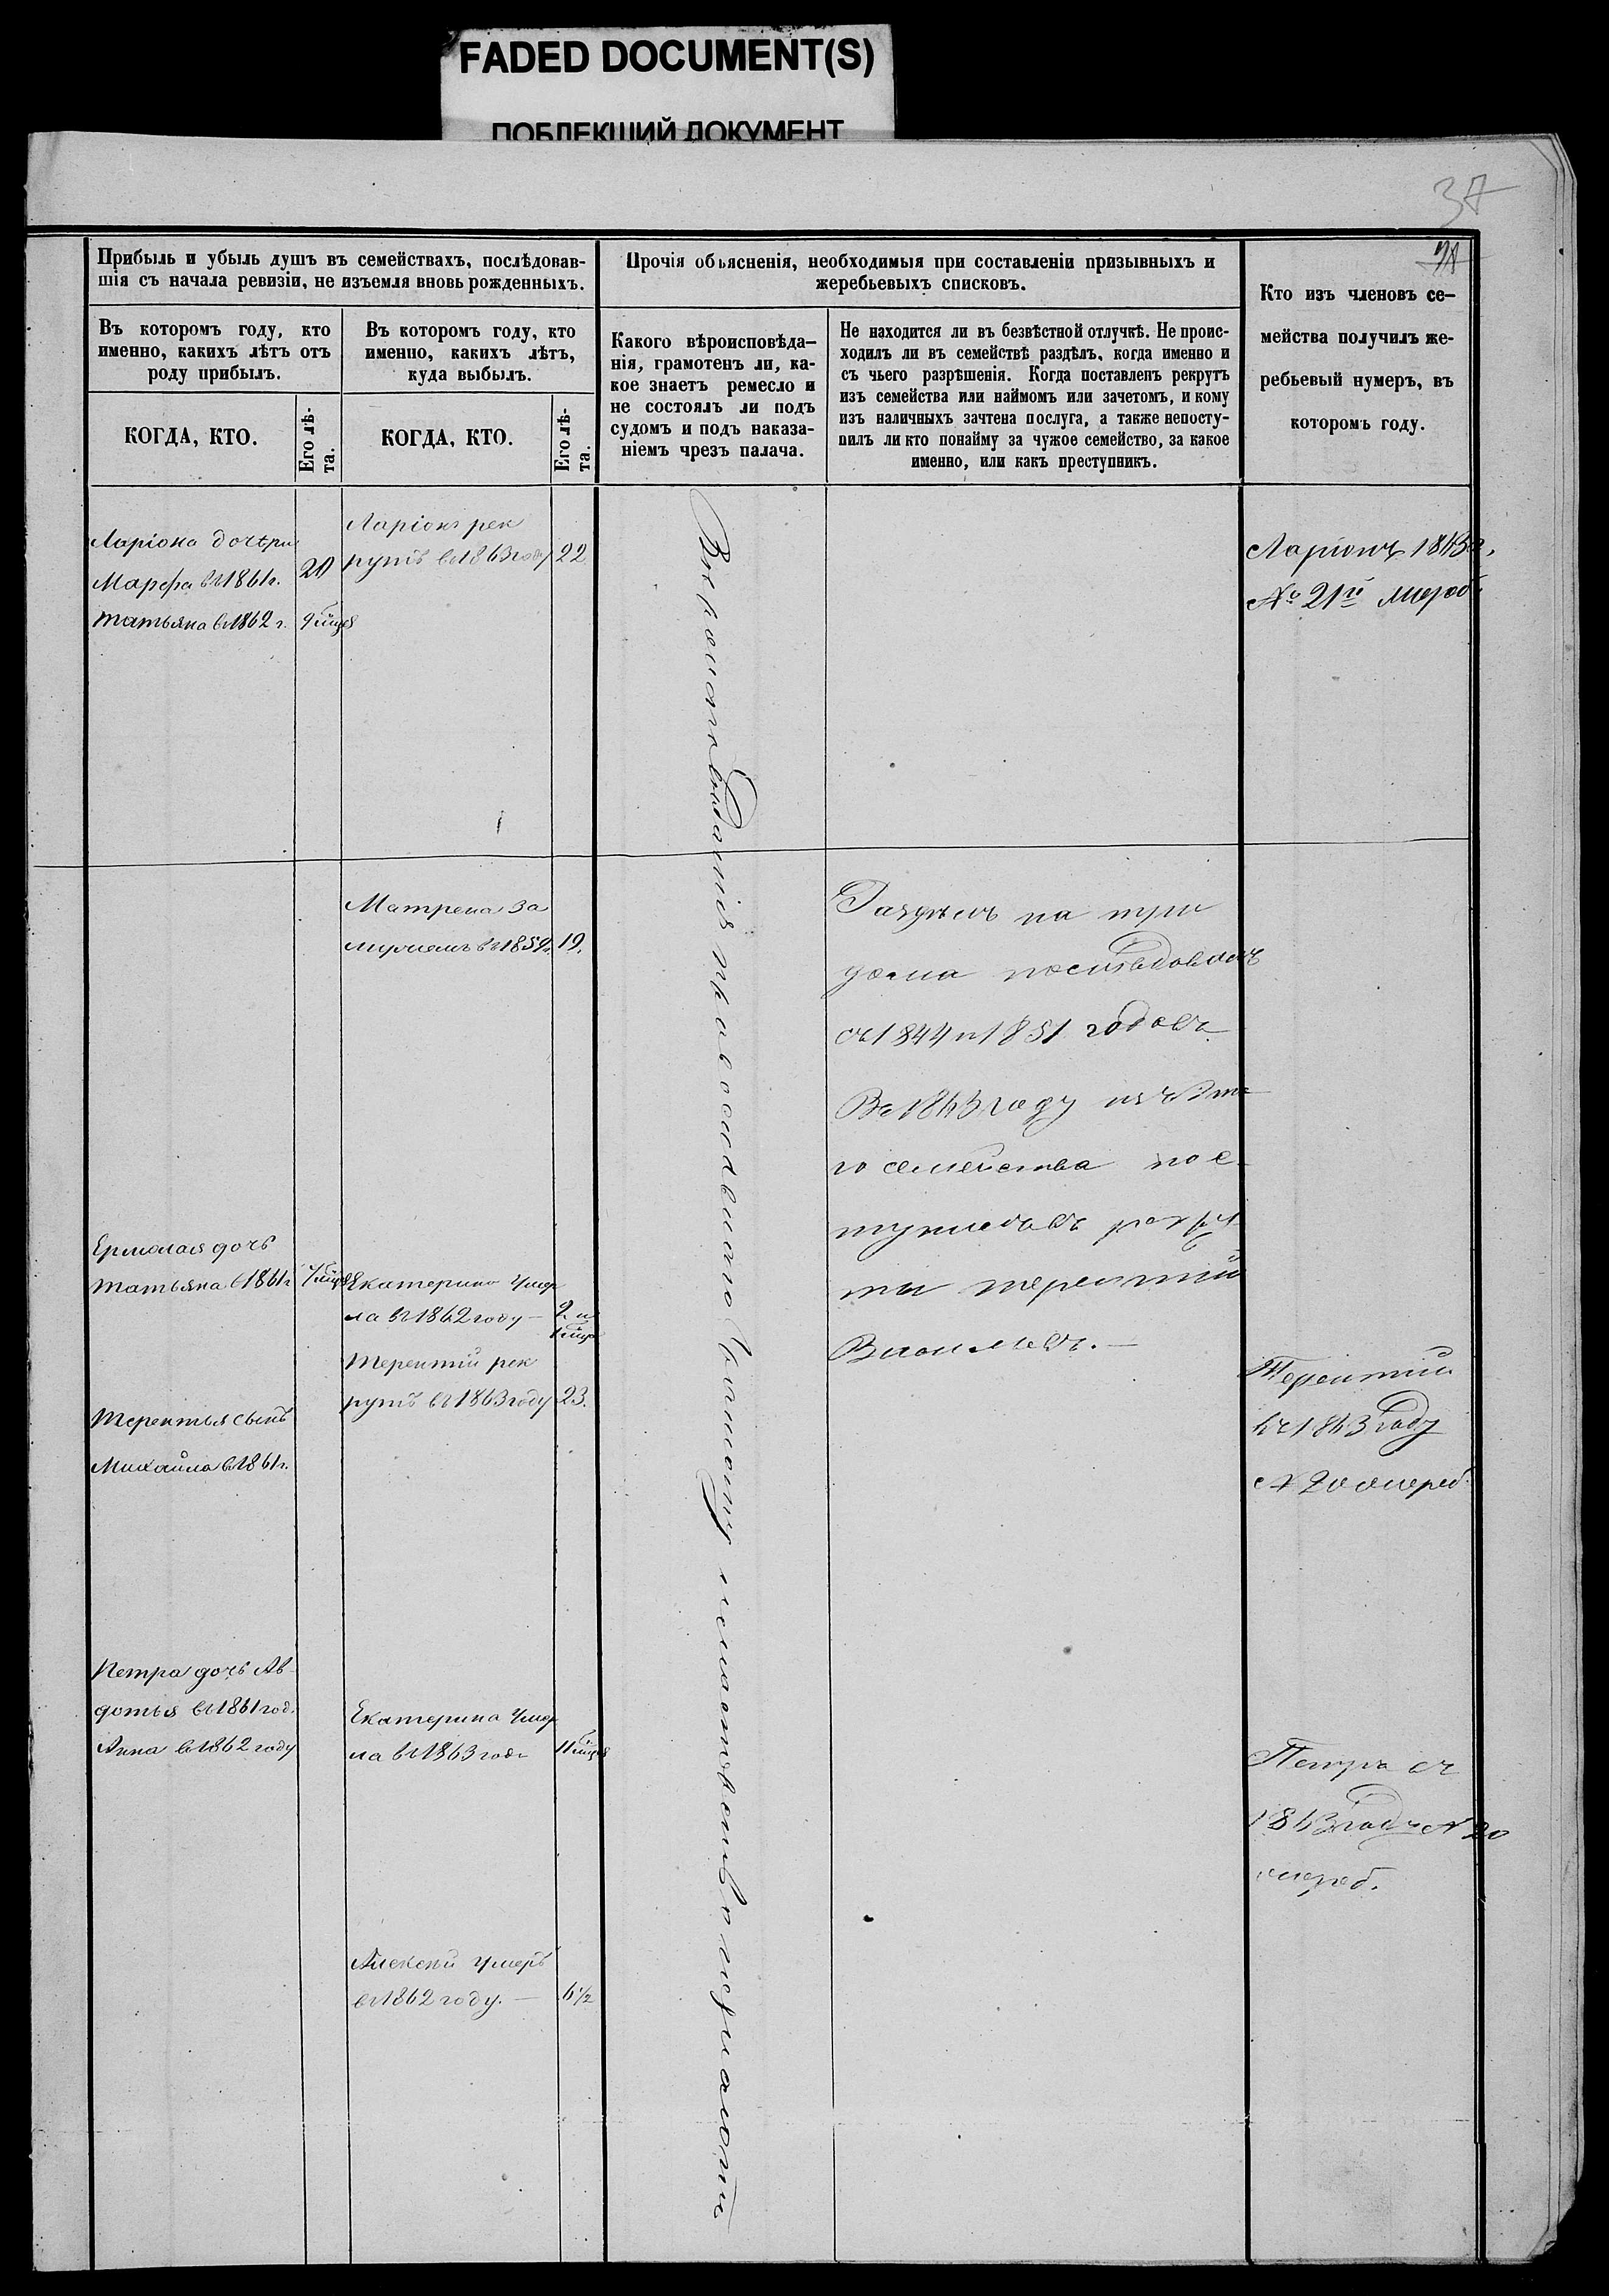 FADED DOCUMENT(S)
ПОБЛЕКШИЙ ДОКУМЕНТ
37
Прибыль и убыль душъ въ семействахъ, послѣдовав-
шія съ начала ревизіи, не изъемля вновь рожденныхъ.
Въ которомъ году, кто
именно, какихъ лѣтъ отъ
роду прибылъ.
Въ которомъ году, кто
именно, какихъ лѣтъ,
куда выбылъ.
КОГДА, КТО.
Его лѣ-
та.
КОГДА, КТО.
Его лѣ-
та.
Прочія объясненія, необходимыя при составленіи призывныхъ и
жеребьевыхъ списковъ.
Какого вѣроисповѣда-
нія, грамотенъ ли, ка-
кое знаетъ ремесло и
не состоялъ ли подъ
судомъ и подъ наказа-
ніемъ чрезъ палача.
Не находится ли въ безвѣстной отлучкѣ. Не проис-
ходилъ ли въ семействѣ раздѣлъ, когда именно и
съ чьего разрѣшенія. Когда поставленъ рекрутъ
изъ семейства или наймомъ или зачетомъ, и кому
изъ наличныхъ зачтена послуга, а также непосту-
пилъ ли кто понайму за чужое семейство, за какое
именно, или какъ преступникъ.
Кто изъ членовъ се-
мейства получилъ же-
ребьевый нумеръ, въ
которомъ году.
Ларіона дочери
Марфа въ 1861 г.
Татьяна въ 1862 г.
Ларіонъ рек
рутъ въ 1863 году 22
Ларіонъ 1863 г.
№ 21й жереб.
Матрена за
мужемъ въ 1859 г. 19.
Ермолая дочь
Татьяна в 1861 г.
Екатерина умер
ла въ 1862 году —
Терентій рек
рутъ въ 1863 году 23.
Терентья сынъ
Михайла въ 1861 г.
Петра дочь Ав-
дотья въ 1861 год.
Анна въ 1862 году
Екатерина умер
ла въ 1863 годе
Алексѣй умеръ
въ 1862 году. — 6 1/2
православнаго
Раздѣлъ на три
дома послѣдовалъ
съ 1844 и 1851 годовъ
Въ 1863 году изъ это
го семейства пос-
Терентій
Васильевъ. —
Терентій
въ 1863 году
№ 20 жереб.
Петръ въ
1863 году № 20
жереб.